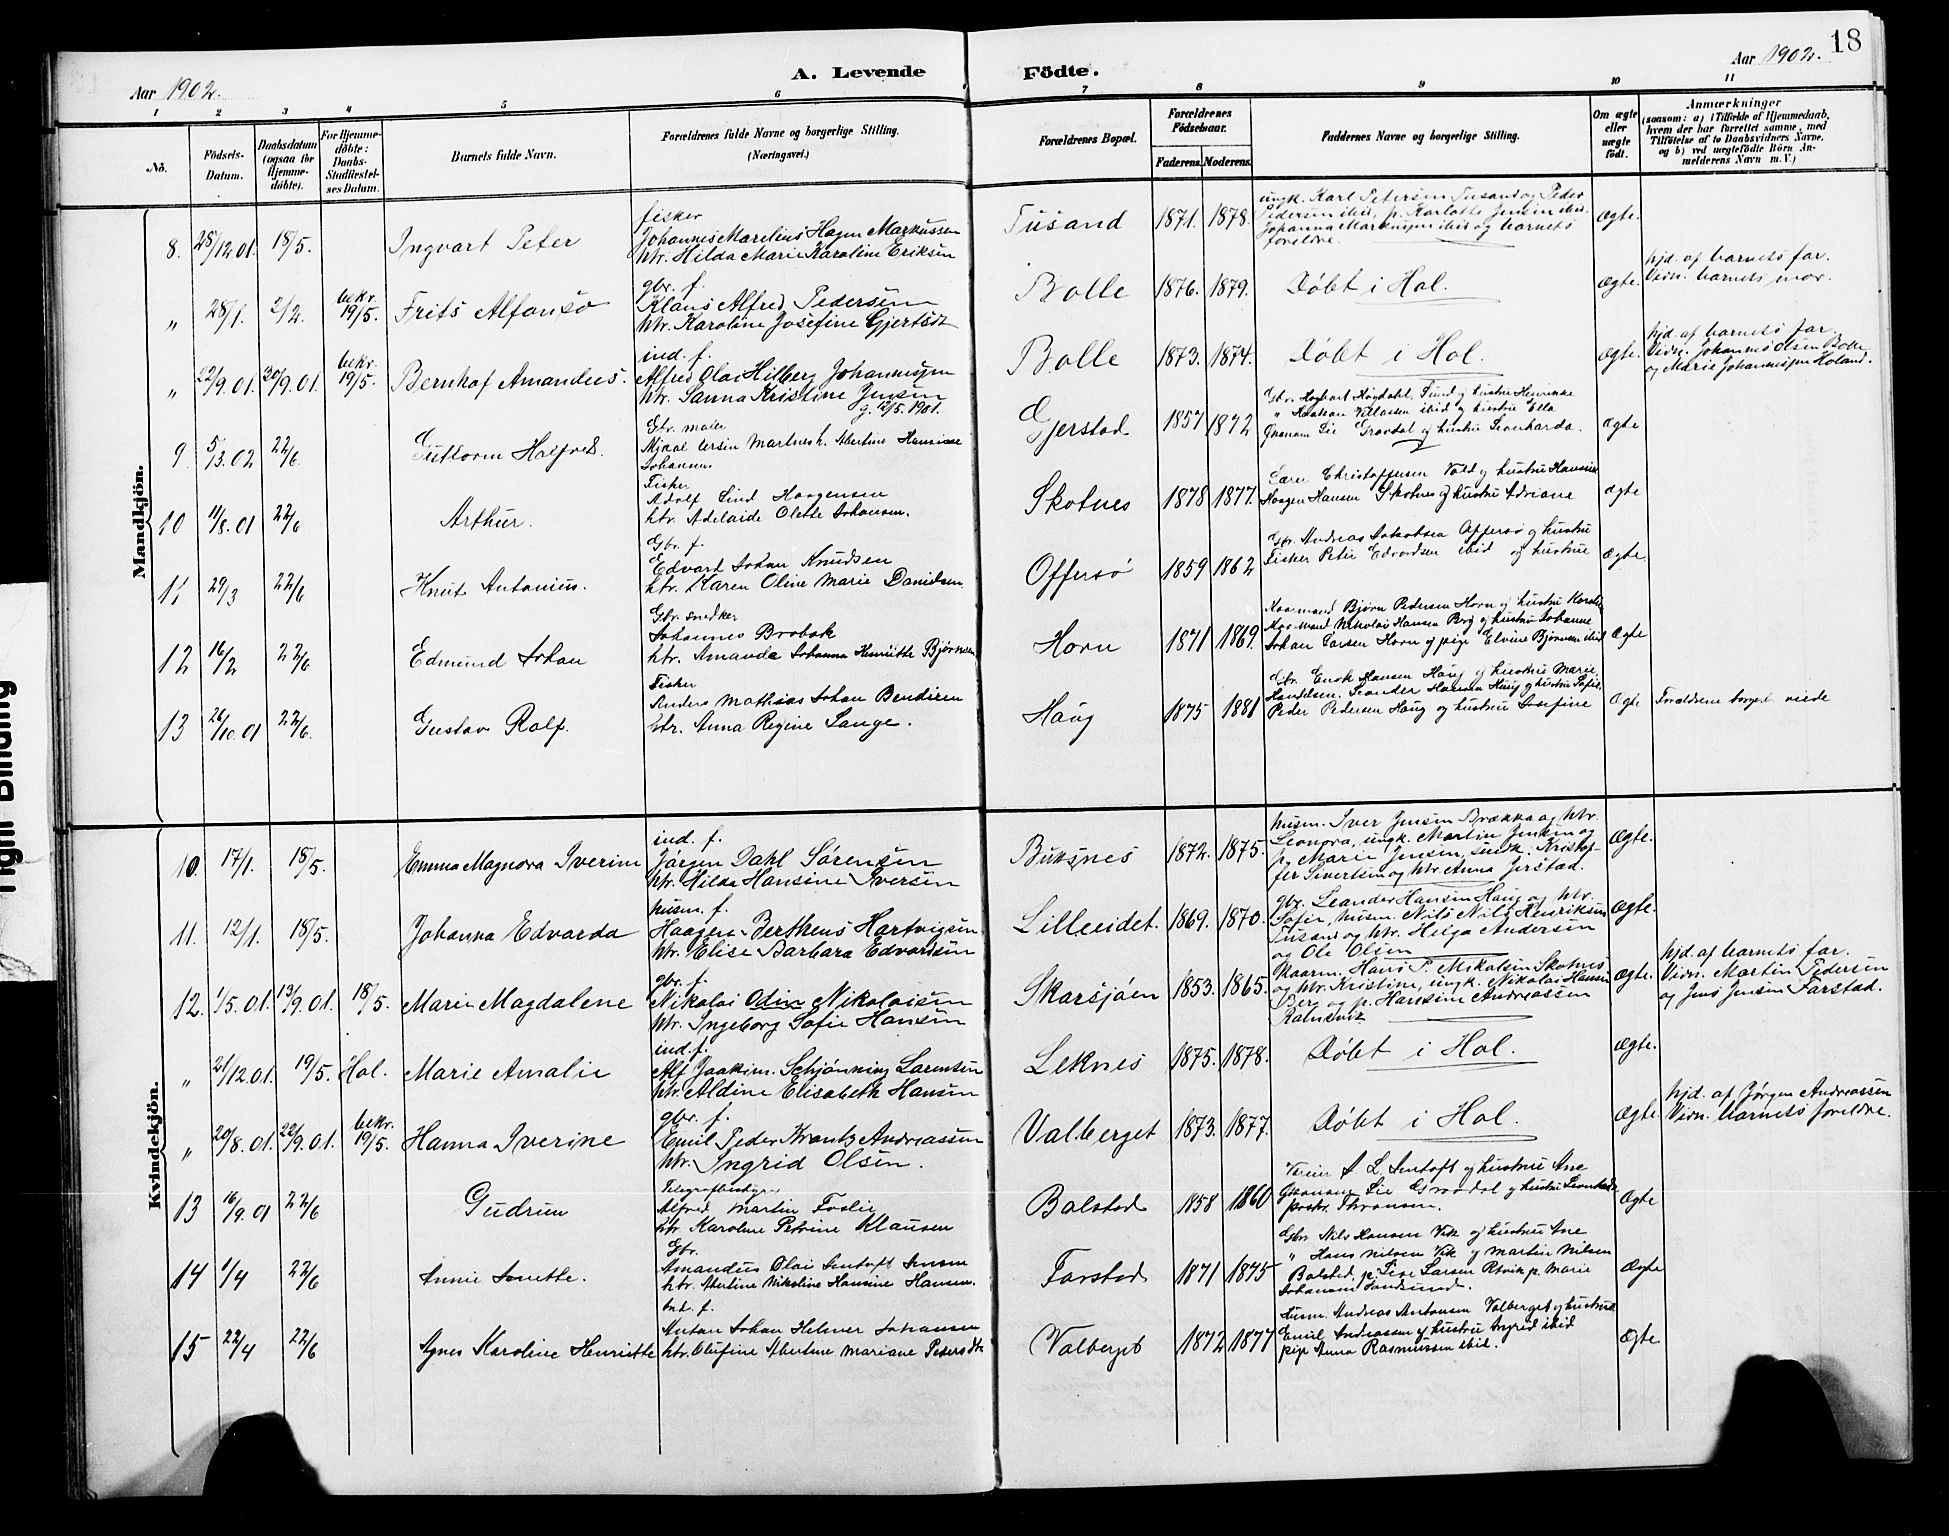 Aar 1902. A. Levende Fødte. Aar 1902. 18
1 2 3 4 5 6 7 8 9 10 11
No.
Fødsels-Datum.
Daabsdatum (ogsaa for Hjemmedøbte).
For Hjemmedøbte: Daabs-Stadfæstelses Datum.
Barnets fulde Navn.
Forældrenes fulde Navne og borgerlige Stilling.
(Næringsvei.)
Forældrenes Bopæl.
Forældrenes Fødselsaar.
Faderens. Moderens.
Faddernes Navne og borgerlige Stilling.
Om ægte eller uægte født.
Anmærkninger
(saasom: a) i Tilfælde af Hjemmedaab,
hvem der har forrettet samme, med
Tilføielse af to Daabsvidners Navne,
og b) ved uægtefødte Børn Anmelderens Navn m.V.)
Mandkjön.
8. 28/12.01. 18/5. Ingvart Peter
fisker
Johannes Marelius Hagen Markussen
htr. Hilda Marie Karoline Eriksen
Tusand 1871. 1878.
ungk. Karl Petersen Tusand og Peder
Pedersen ibid, p. Karlotte Jensen ibid.
Johanna Markussen ibid og barnets
foreldre.
Ægte.
" 28/1. 2/2. bekr. 19/5. Frits Alfonso
gbr. f.
Klaus Alfred Pedersen
htr. Karoline Josefine Gjertsdt
Bolle 1876. 1879. Døbt i Hol. Ægte.
hjd. af barnets far.
Vidn. barnets mor.
" 22/9.01. 30/9.01. bekr. 19/5. Bernhof Amandus.
ind. f.
Alfred Olai Hilberg Johannessen
htr. Sanna Kristine Jensen
g. 12/5.1901.
Bolle 1873. 1874. Døbt i Hol. Ægte.
hjd. af barnets far.
Vidn. Johannes Olsen Bolle
og Marie Johannessen Holand.
9. 5/3.02 22/6. Guttorm Halfred.
Gbr. maler
Johansen.
Gjerstad 1857 1872
Ægte
10 11/8.01 22/6 Arthur.
Fisker
Adolf Lind Haagensen
htr. Adelaide Olette Johansen.
Skotnes 1878 1877.
Christoffersen Vold og hustru Hansine
Haagen Hansen Skotnes og hustru Adriane
Ægte
11 29/3 22/6 Knut Antonius.
Gbr. f.
Edvart Johan Knudsen
htr. Karen Oline Marie Danielsen
Offersø 1859 1862
Gbr. Andreas Jakobsen Offersø og hustru
Fisker Peter Edvardsen ibid og hustru
Ægte.
12 16/2 22/6 Edmund Johan
Gbr. snedker
Johannes Brobak
htr. Amanda Johanna Henriette Bjørnsen
Horn 1871 1869.
Kaarmand Bjørn Pedersen Horn og hustru
Kaarmand Nikolai Hansen Berg og hustru Johanne
Johan Larsen Horn og pige Elvine Bjørnsen ibid
Ægte
13 26/10.01 22/6. Gustav Rolf.
Fisker
Anders Mathias Johan Bendixen
htr. Anna Regine Lange.
Haug 1875 1881
Gbr. Enok Hansen Haug og hustru Marie
Leander Hansen Haug og hustru Sofie.
Peder Pedersen Haug og hustru Josefine
Ægte Forældrene borgel. viede
Kvindekjön.
10. 17/1. 18/5. Emma Magnora Iverine
ind. f.
Jørgen Dahl Sørensen
htr. Hilda Hansine Iversen
Buksnes 1872. 1875.
husm. Iver Jensen Brækka og htr.
Leonora, ungk. Martin Jensen og
p. Marie Jensen, snedk. Kristoffer
Sivertsen og htr. Anna Jerstad.
Ægte.
11. 12/1. 18/5. Johanna Edvarda
husm. f.
Haagen Bertheus Hartvigsen
htr. Elise Barbara Edvardsen
Lilleeidet. 1869. 1870.
gbr. Leander Hansen Haug og htr.
Sofie, husm. Nils Nils Henriksen
Tusand og htr. Helga Andersen
og Ole Olsen
Ægte.
12. 1/5.01. 13/9.01. 18/5. Marie Magdalene
gbr. f.
Nikolai Odin Nikolaisen
htr. Ingeborg Sofie Hansen
Skarsjøen 1853. 1865.
Kaarm. Hans P. Mikalsen Skotnes
og htr. Kristine, ungk. Nikolai Hansen
Berg og p. Hansine Andreassen
Ægte.
hjd. af barnets far.
Vidn. Martin Pedersen
og Jens Jensen Farstad.
" 21/12.01. 19/5. Hol. Marie Amalie
ind. f.
Alf Joakim Schjønning Larentsen
htr. Aldine Elisabeth Hansen
Leknes 1875. 1878. Døbt i Hol. Ægte.
" 20/8.01. 22/9.01. bekr. 19/5. Hanna Iverine
gbr. f.
Emil Peder Krantz Andreassen
htr. Ingrid Olsen.
Valberget 1873. 1877. Døbt i Hol. Ægte.
hjd. af Jørgen Andreassen
Vidn. barnets foreldre.
13 16/9.01 22/6 Gudrun
Telegrafbestyrer
Alfred Martin Foslie
htr Karoline Petrine Klausen
Balstad 1858 1860
og hustru Ane
Ægte
14 1/4 22/6 Annie Jonette.
Gbr.
Amandus Olai Jentoft Jensen
htr. Albertine Nikoline Hansine Hansen.
Farstad 1871 1875
Gbr Nils Hansen Vik og hustru Ane
" Hans Nilsen Vik og Martin Nilsen
Balstad, p. Larsen p. Marie
Johansen Sandsund.
Ægte
15 22/4 22/6 Agnes Karoline Henriette
Ind. f.
Anton Johan Helmer Johansen
htr. Olufine Albertine Mariane Pedersdtr
Valberget 1872 1877
Husm Andreas Antonsen Valberget og hustru
Emil Andreassen og hustru Ingrid ibid
pige Anna Rasmussen ibid.
Ægte
Tight Binding